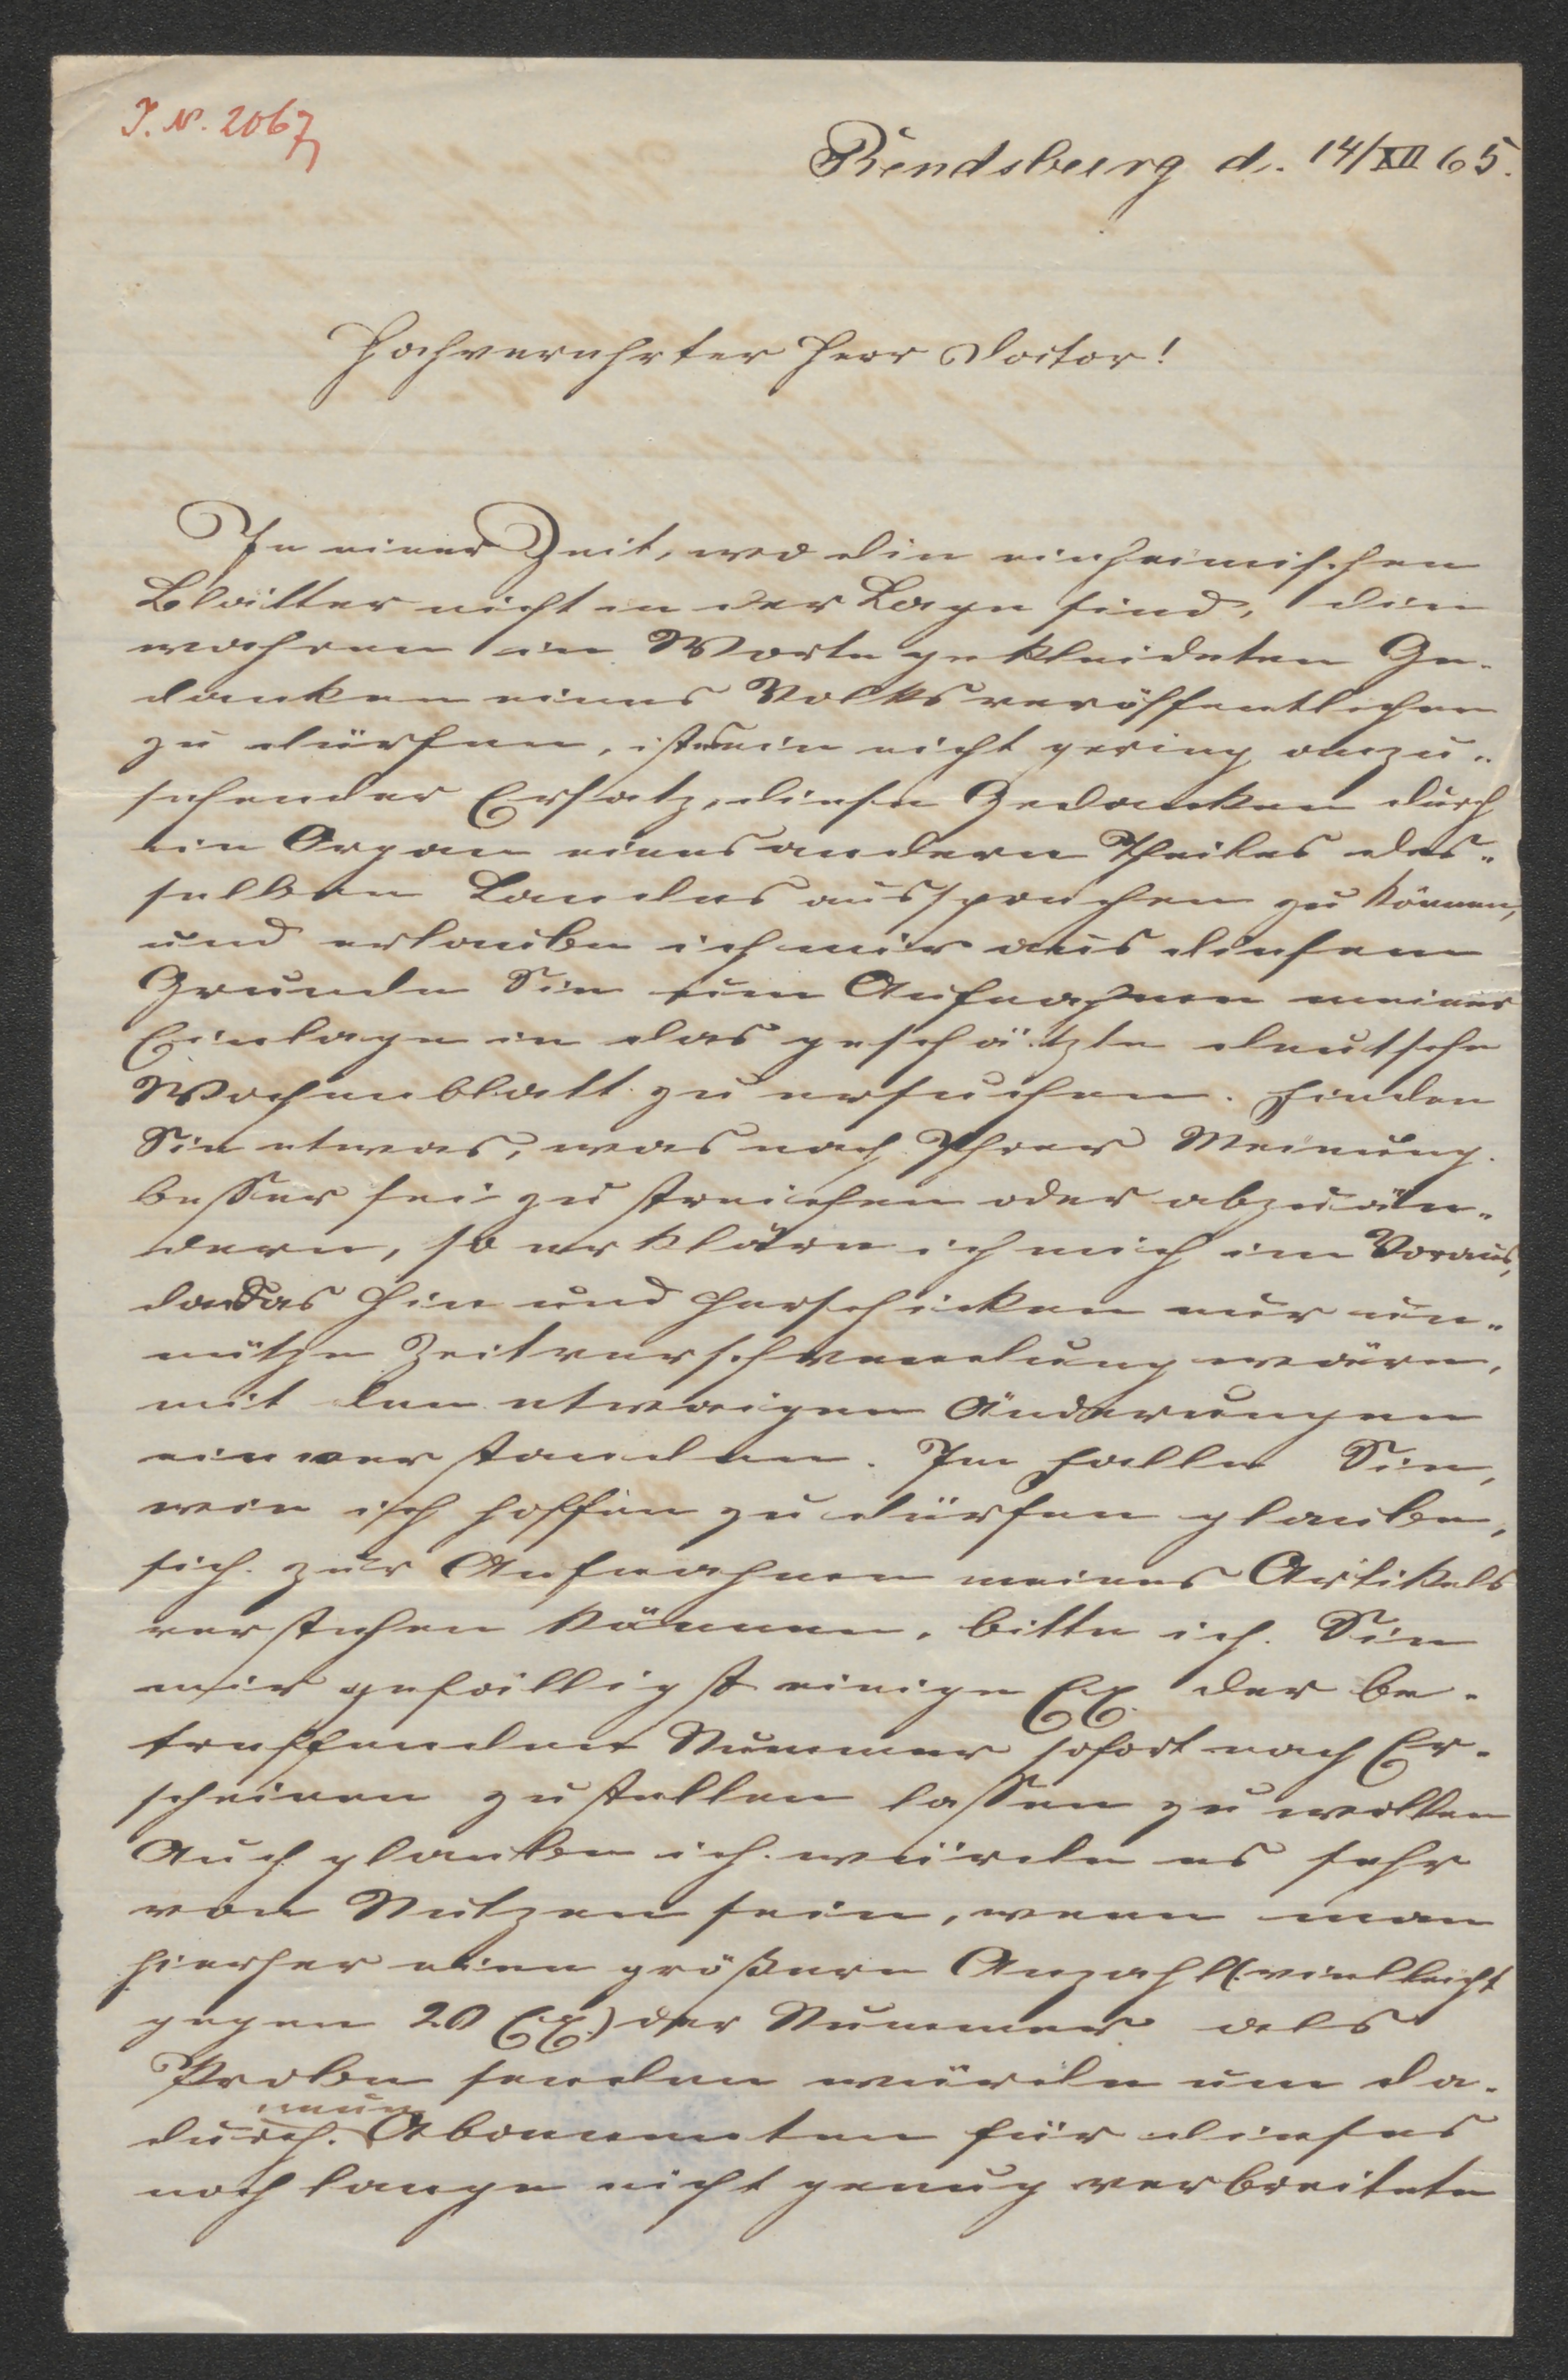 J. N. 2067
Rendsburg d. 14/XII 65.
Hochverehrter Herr Doctor!
In einer Zeit, wo die einheimischen
Blätter nicht in der Lage sind, die
wahren in Worte gekleideten Ge-
danken eines Volks veröffentlichen
zu dürfen, ist es ein nicht gering anzu-
sehender Ersatz, diese Gedanken durch
ein Organ eines andern Theiles des-
selben Landes aussprechen zu können,
und erlaube ich mir aus diesem
Grunde Sie um Aufnahme meiner
Einlage in das geschätzte deutsche
Wochenblatt zu ersuchen. Finden
Sie etwas, was nach Ihrer Meinung
besser sei zu streichen oder abzuän-
dern, so erkläre ich mich im Voraus,
da das Hin und Herschicken nur un-
nütze Zeitverschwendung wäre,
mit den etwaigen Änderungen
einverstanden. Im Falle Sie,
wie ich hoffen zu dürfen glaube,
sich zur Aufnahme meines Artikels
verstehen können, bitte ich Sie
mir gefälligst einige Ex. der be-
treffenden Nummer sofort nach Er-
scheinen zustellen lassen zu wollen
Auch glaube ich würde es sehr
von Nutzen sein, wenn man
hierher eine größere Anzahl (vielleicht
gegen 20 Ex.) der Nummer als
Probe senden würde um da-
durch neue Abonnenten für dieses
noch lange nicht genug verbreitete